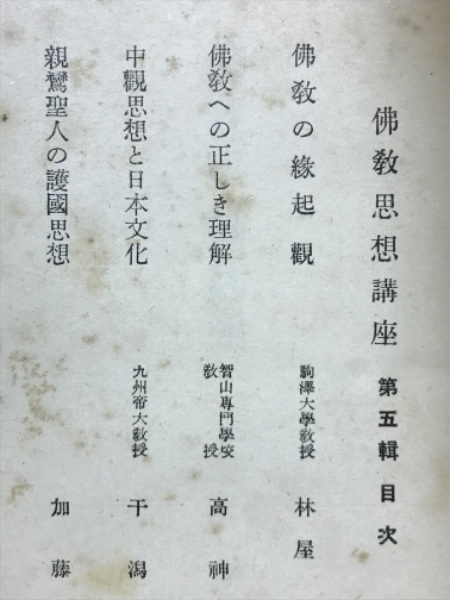 佛敎思想講座 第五輯 目次
佛敎の緣起觀 駒澤大學敎授 林屋
佛敎への正しき理解 智山專門學校敎授 高神
中觀思想と日本文化 九州帝大敎授 干潟
親鸞聖人の護國思想 加藤